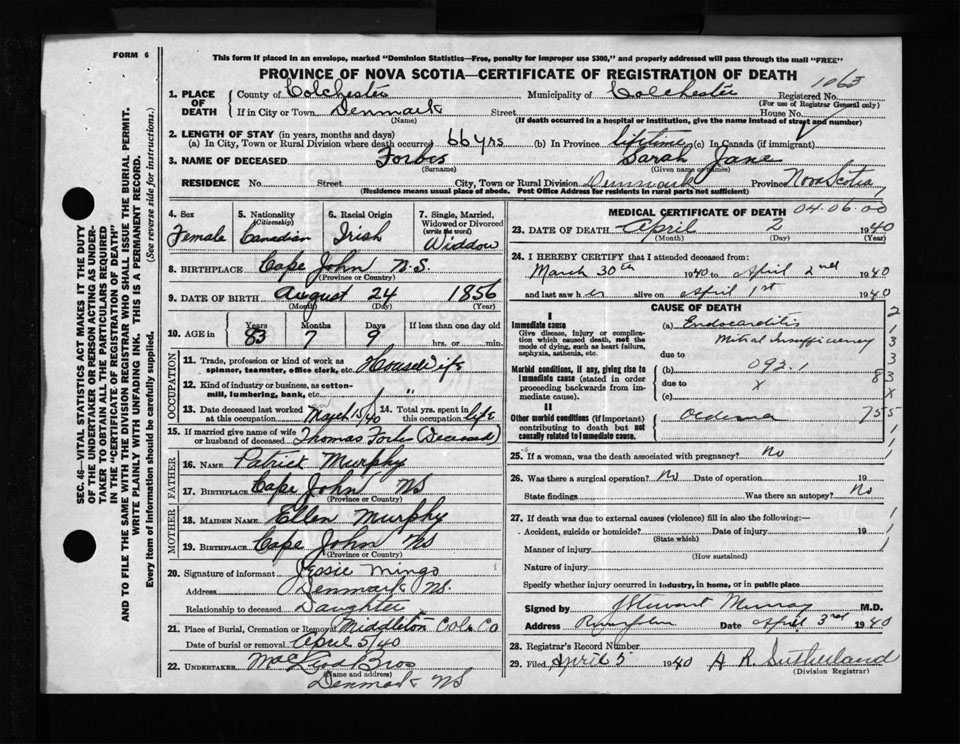 FORM 6
This form if placed in an envelope, marked "Dominion Statistics—Free, penalty for improper use $300," and properly addressed will pass through the mail "FREE"
PROVINCE OF NOVA SCOTIA—CERTIFICATE OF REGISTRATION OF DEATH
1063
1. PLACE OF DEATH
County of Colchester Municipality of Colchester Registered No.
(For use of Registrar General only)
If in City or Town Denmark Street House No.
(Name) (If death occurred in a hospital or institution, give the name instead of street and number)
2. LENGTH OF STAY (in years, months and days)
(a) In City, Town or Rural Division where death occurred 66 yrs (b) In Province lifetime (c) In Canada (if immigrant)
3. NAME OF DECEASED Forbes Sarah Jane
(Surname) (Given name or names)
RESIDENCE No. Street City, Town or Rural Division Denmark Province Nova Scotia
(Residence means usual place of abode. Post Office Address for residents in rural parts not sufficient)
4. Sex
Female
5. Nationality (Citizenship)
Canadian
6. Racial Origin
Irish
7. Single, Married, Widowed or Divorced (write the word)
Widdow
8. BIRTHPLACE Cape John N.S.
(Province or Country)
9. DATE OF BIRTH August 24 1856
(Month) (Day) (Year)
10. AGE in Years Months Days If less than one day old
83 7 9 hrs. or min.
OCCUPATION
11. Trade, profession or kind of work as spinner, teamster, office clerk, etc. HouseWife
12. Kind of industry or business, as cotton-mill, lumbering, bank, etc. "
13. Date deceased last worked at this occupation March 15/40 14. Total yrs. spent in this occupation life
15. If married give name of wife or husband of deceased Thomas Forbes (Deceased)
FATHER
16. NAME Patrick Murphy
17. BIRTHPLACE Cape John NS
(Province or Country)
MOTHER
18. MAIDEN NAME Ellen Murphy
19. BIRTHPLACE Cape John NS
(Province or Country)
20. Signature of informant Jessie Mingo
Address Denmark NS.
Relationship to deceased Daughter
21. Place of Burial, Cremation or Removal Middleton Col. Co
Date of burial or removal April 5/40
22. UNDERTAKER MacLeod Bros
(Name and address)
Denmark NS
MEDICAL CERTIFICATE OF DEATH 04.06.00
23. DATE OF DEATH April 2 1940
(Month) (Day) (Year)
24. I HEREBY CERTIFY that I attended deceased from:
March 30th 1940 to April 2nd 1940
and last saw her alive on April 1st 1940
CAUSE OF DEATH
I
Immediate cause
Give disease, injury or complication which caused death, not the mode of dying, such as heart failure, asphyxia, asthenia, etc.
(a) Endocarditis
Mitral Insufficiency
due to
Morbid conditions, if any, giving rise to immediate cause (stated in order proceeding backwards from immediate cause).
(b) 093.1
due to x
(c)
II
Other morbid conditions (if important) contributing to death but not causally related to immediate cause.
Oedema
25. If a woman, was the death associated with pregnancy? No
26. Was there a surgical operation? No Date of operation 19
State findings Was there an autopsy? No
27. If death was due to external causes (violence) fill in also the following:—
Accident, suicide or homicide? Date of injury 19
(State which)
Manner of injury
(How sustained)
Nature of injury
Specify whether injury occurred in industry, in home, or in public place
Signed by J Stewart Murray M.D.
Address Date April 3rd 1940
28. Registrar's Record Number
29. Filed April 5 1940 H R Sutherland
(Division Registrar)
SEC. 46—VITAL STATISTICS ACT MAKES IT THE DUTY
OF THE UNDERTAKER OR PERSON ACTING AS UNDER-
TAKER TO OBTAIN ALL THE PARTICULARS REQUIRED
IN THE "CERTIFICATE OF REGISTRATION OF DEATH"
AND TO FILE THE SAME WITH THE DIVISION REGISTRAR WHO SHALL ISSUE THE BURIAL PERMIT.
WRITE PLAINLY WITH UNFADING INK. THIS IS A PERMANENT RECORD.
Every item of information should be carefully supplied. (See reverse side for instructions.)